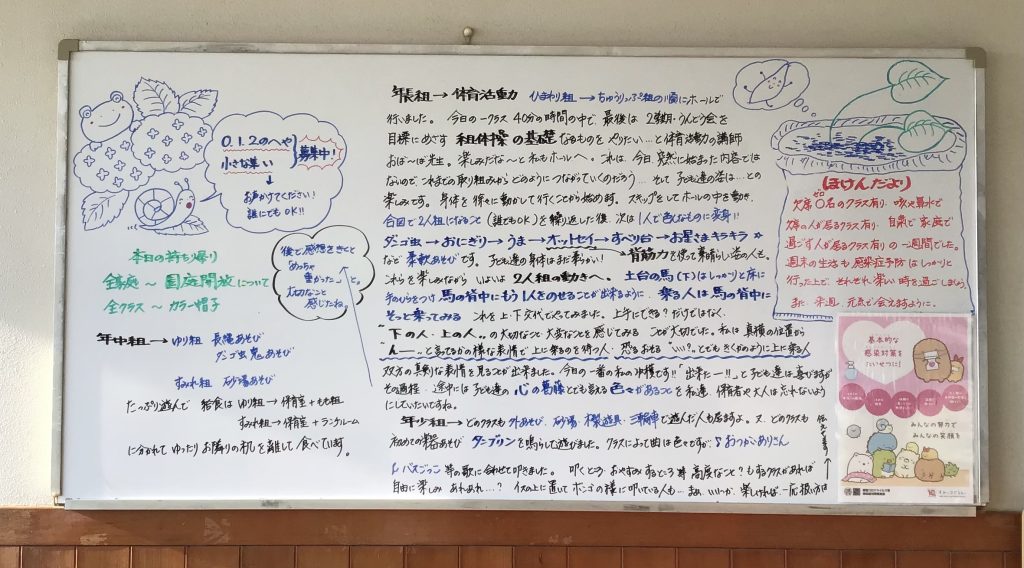 0.1.2のへや
小さな集い
募集中!
お声がけてください!
誰にでもOK!!
本日の持ち帰り
全家庭〜園庭開放について
全クラス〜カラー帽子
後で感想をきくと
「めっちゃ
重かった」と。
大切なこと
感じたね。
年中組→ゆり組 長縄あそび
ダンゴ虫鬼あそび
すみれ組 砂場あそび
たっぷり遊んで 給食はゆり組→保育室+もも組
すみれ組→保育室+ランクルーム
に分かれて ゆったりお隣りの机を離して食べています。
年長組→体育活動 ひまわり組→ちゅうりっぷ組の順にホールで
行いました。 今日の一クラス40分の時間の中で、最後は2学期・うんどう会を
目標にめざす 組体操の基礎なるものをやりたい…と体育活動の講師
おばーは先生。楽しみだな〜と私もホールへ。これは、今日突然に始まった内容では
ないので、これまでの取り組みからどのようにつながっていくのだろう…そして子ども達の姿は…との
楽しみです。身体を徐々に動かして行くことから始めます。スキップをしてホールの中を動き、
合図で2人組になること(誰でもOK)を繰り返した後、次は1人で色々なものに変身!!
ダンゴ虫→おにぎり→うま→オットセイ→すべり台→お星さまキラキラ
など柔軟あそびです。子ども達の身体はまだ柔らかい! →背筋力を使って素晴らしい姿の人も。
これらを楽しみながら いよいよ2人組の動きへ。土台の馬(下)はしっかりと床に
手のひらをつけ馬の背中にもう1人をのせることが出来るように。乗る人は馬の背中に
そっと乗ってみる これを上・下交代でやってみました。上手にできる?だけではなく、
"下の人・上の人"の大切なこと大変なことを感じてみる ことが大切でした。私は真横の位置から
"んーー"と
双方の真剣な表情を見ることが出来ました。今日の一番の私の沖縄です!!「出来たー!!」と子ども達は喜びますが
その過程・途中には子ども達の心の葛藤とも言える色々があることを私達、保育者や大人は忘れないように
していたいですね。
年少組→どのクラスも外あそび、砂場 木製遊具 三輪車で遊んだ人も居ますよ。又、どのクラスも
初めての楽器あそび タンブリンを鳴らして遊びました。クラスによって曲は色々ですが、♪おつかいありさん
♪バスごっこ 等の歌に合わせて叩きました。叩くところ・おやすみするところ等 高度なこと?もするクラスがあれば
自由に楽しみ あれあれ…? イスの上に置いてボンゴの様に叩いている人も…まぁいいっか、楽しければ、一応扱い方は
伝えてます→
ほけんだより
欠席0名のクラス有り・咳や鼻水で
欠席の人が居るクラス有り・自粛で家庭で
過ごす人が居るクラス有りの一週間でした。
週末の生活も感染症予防はしっかりと
行った上で、それぞれ楽しい時を過ごしましょう。
また、来週、元気で会えますように。
基本的な
感染対策を
たいせつに!
みんなの努力で
みんなの笑顔を